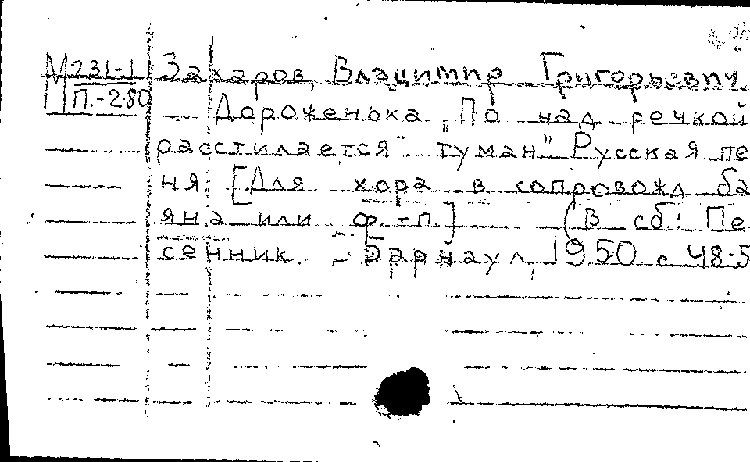 М231-1 Захаров, Владимир Григорьевич.
П.-280 Дороженька „По над речкой
расстилается туман" Русская пе
ня. [Для хора в сопровожд ба
яна или ф.-п.] (В сб: Пе
сенник. - Барнаул, 1950 с 48-5